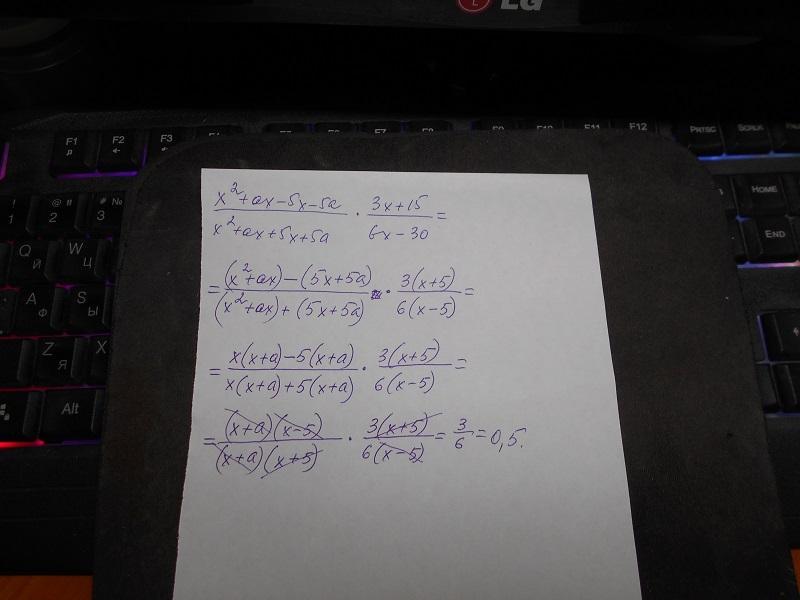 LG
F1 F2 F3 F7 F8 F10 F11 F12 PRTSC SCRLK
р ←
! 1 @ " 2 # № 3 HOME
Q Й W Ц END
A Ф S Ы
Z Я X
Alt
x²+ax-5x-5a / x²+ax+5x+5a · 3x+15 / 6x-30 =
= (x²+ax)-(5x+5a) / (x²+ax)+(5x+5a) · 3(x+5) / 6(x-5) =
= x(x+a)-5(x+a) / x(x+a)+5(x+a) · 3(x+5) / 6(x-5) =
= (x+a)(x-5) / (x+a)(x+5) · 3(x+5) / 6(x-5) = 3/6 = 0,5.